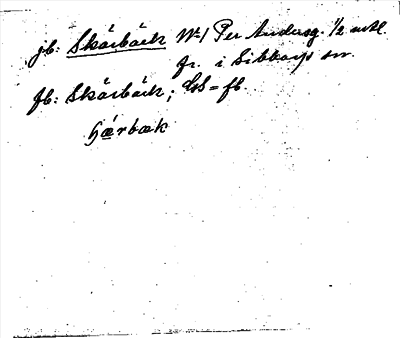 jb: Skärbäck № 1 Per Andersg. 1/2 mtl.
fr. i Sibbarp sn.
fb: Skärbäck; GS = fb.
hǽrbæk